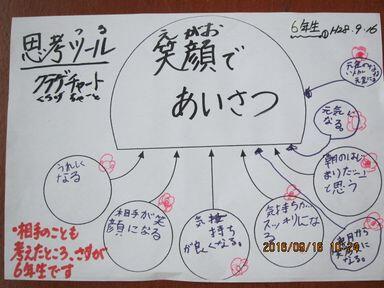 思考ツール
つる
クラゲチャート
くらげちゃーと
えがお
笑顔で
あいさつ
6年生
H28.9.16
元気に
なる。
朝のはじ
まりだ…」
と思う
うれしく
なる
相手が笑
顔になる
気持ち
が良くなる。
気持ちが
スッキリにな
る
・相手のことも
考えたところ、さすが
6年生です
2016/09/16 10:29